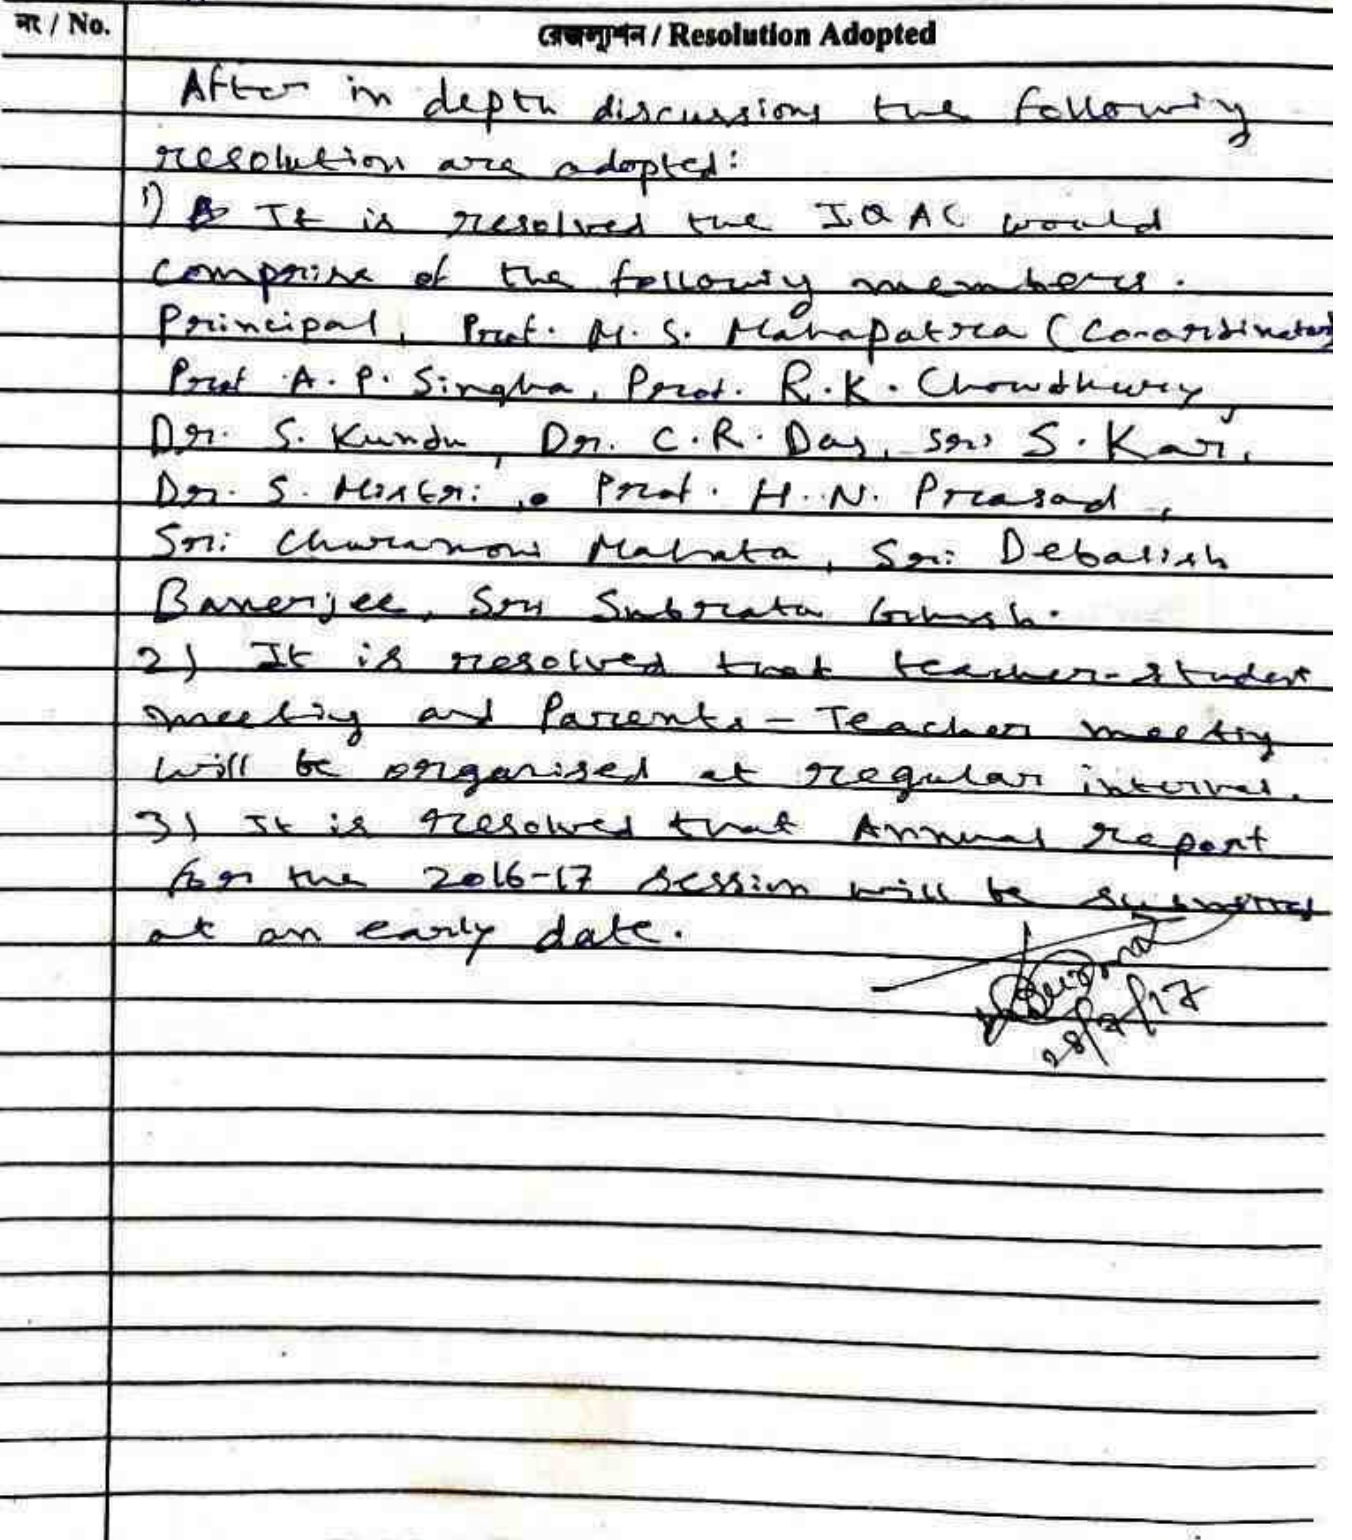 নং / No.
রেজল্যুশন / Resolution Adopted
After in depth discussions the following
resolution are adopted:
1) It is resolved the IQAC would
comprise of the following members.
Principal, Prof. M. S. Mahapatra (Co-ordinator)
Prof A. P. Singha, Prof. R. K. Chowdhury,
Dr. S. Kundu, Dr. C. R. Das, Sri S. Kar,
Dr. S. Mistri, Prof. H. N. Prasad,
Sri Mahata, Sri Debasish
Banerjee, Sri Subrata Ghosh.
2) It is resolved that teacher-student
meeting and Parents - Teacher meeting
will be organised at regular interval.
3) It is resolved that Annual report
for the 2016-17 session will be submitted
at an early date.